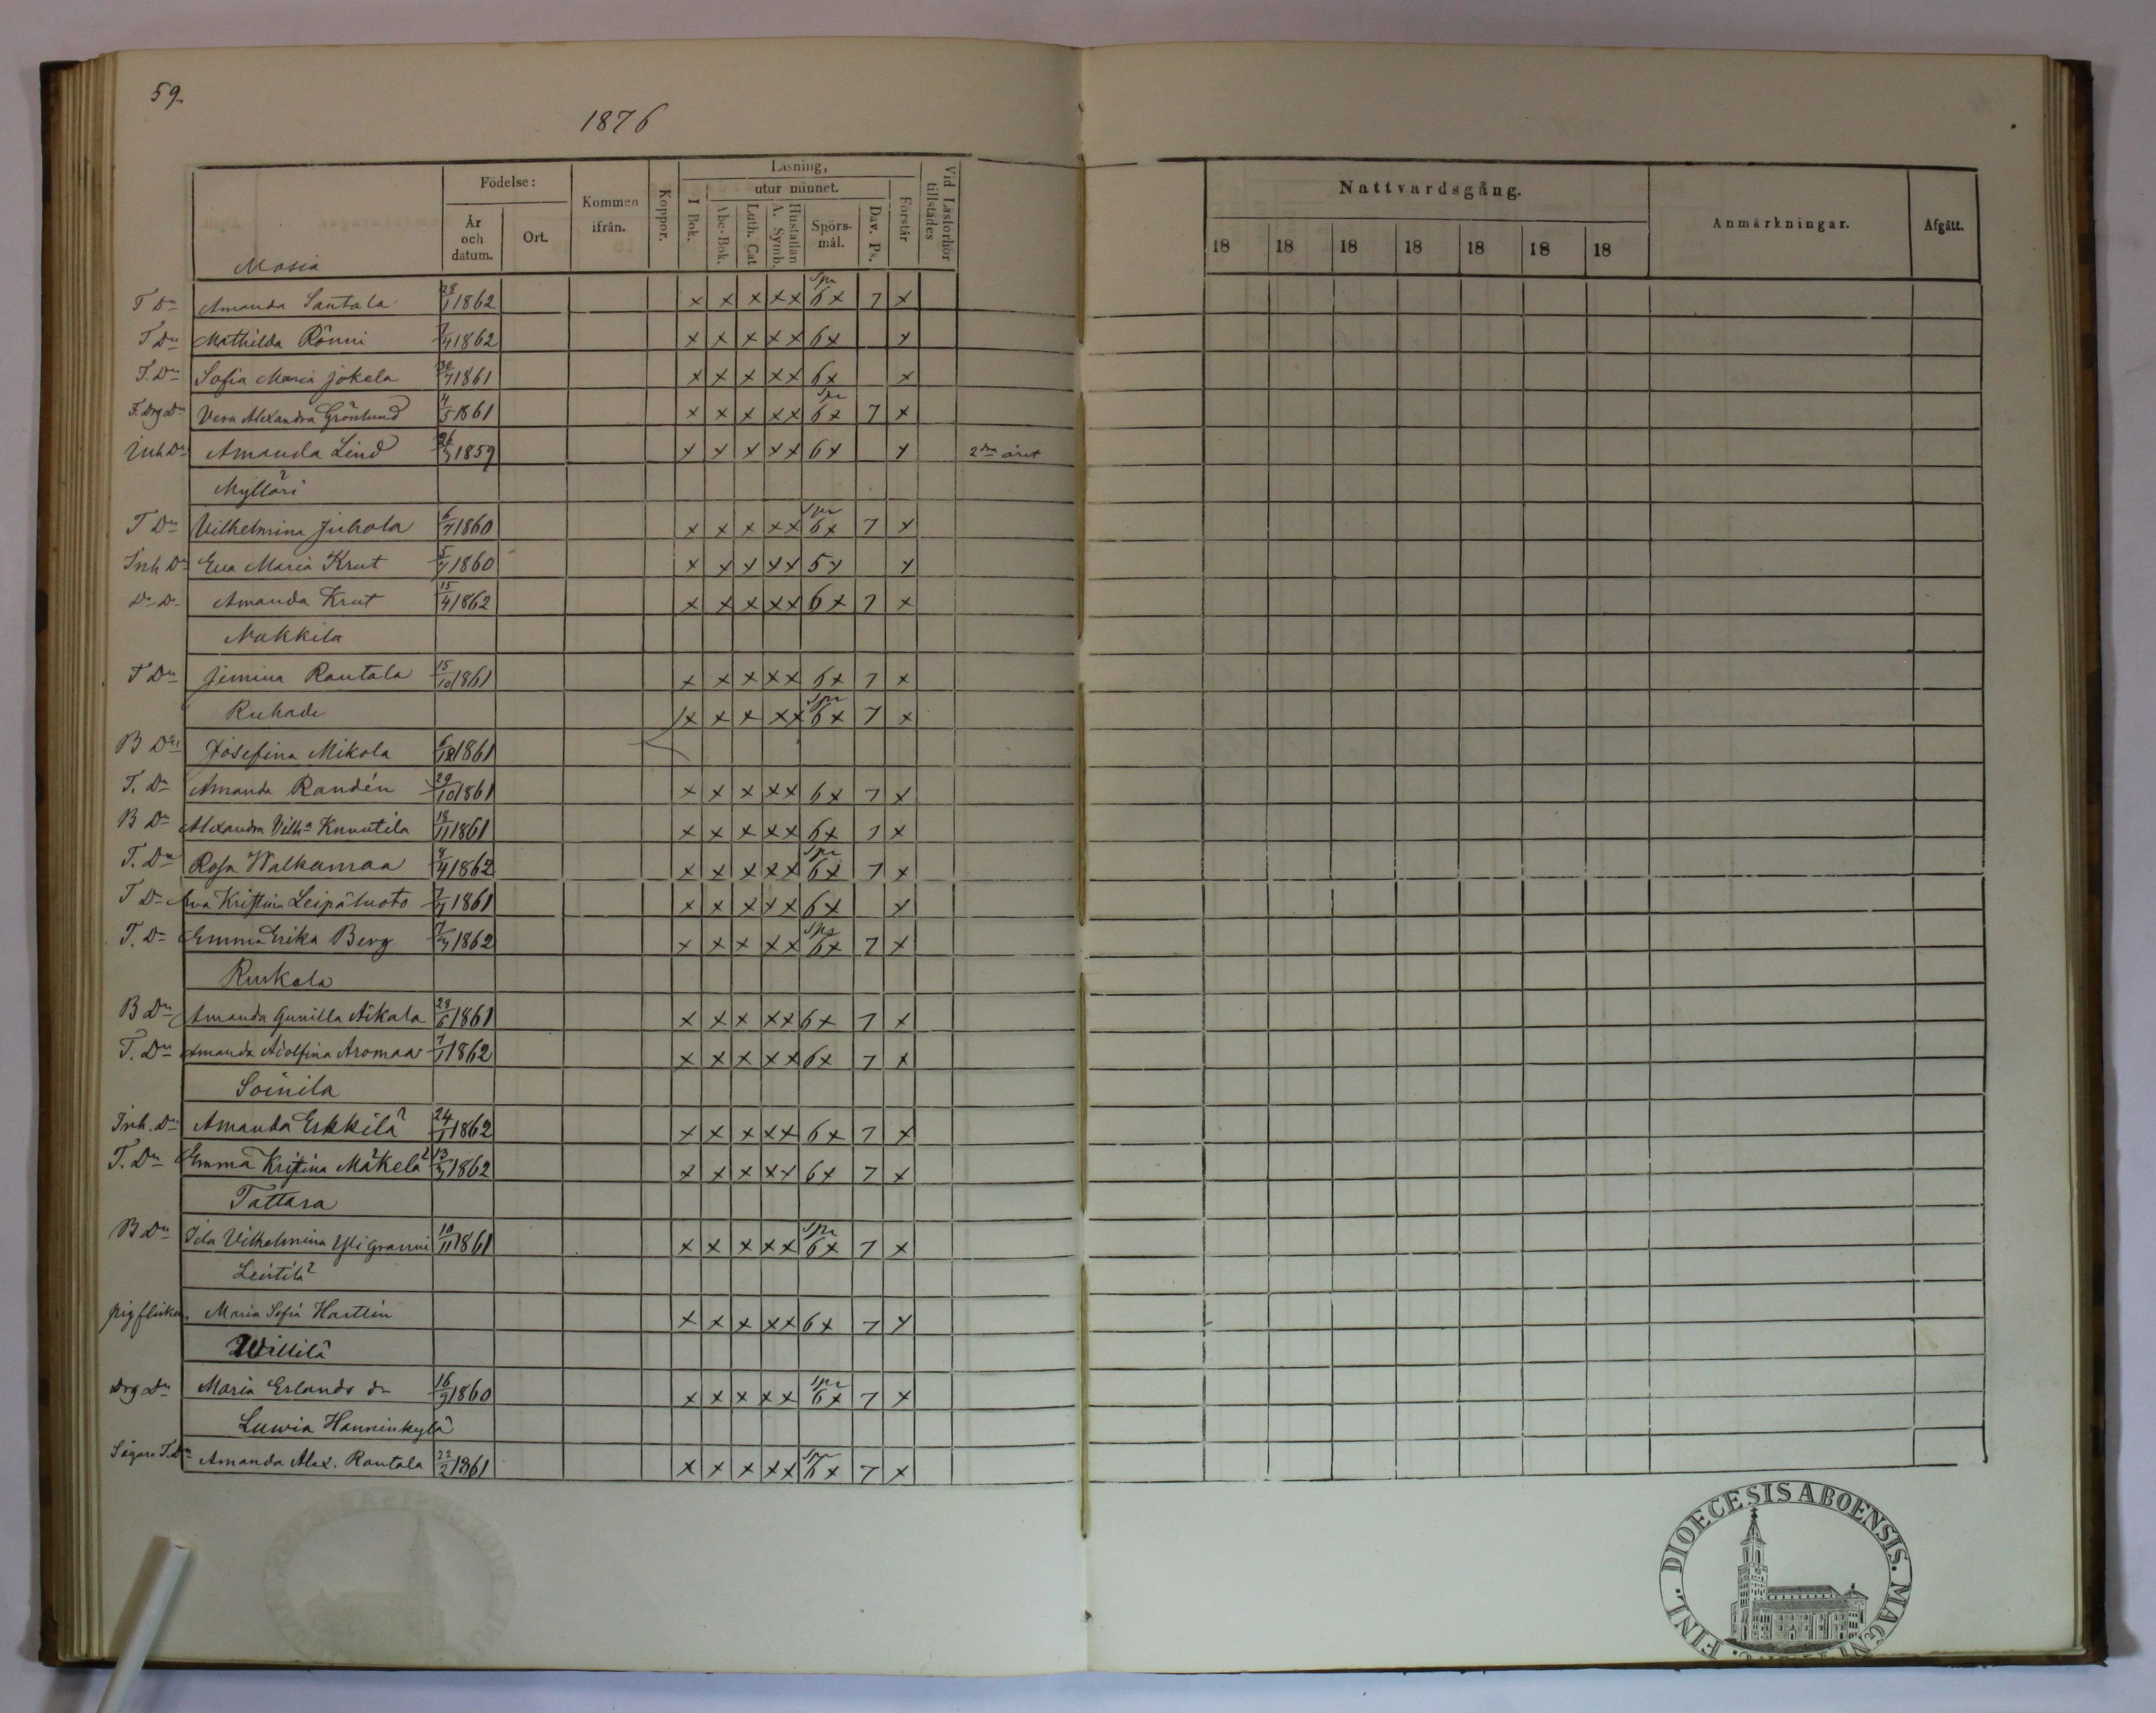 59.
1876
Födelse:
År och datum.
Ort.
Kommen ifrån.
Koppor.
Läsning,
utur minnet.
I Bok.
Abc-Bok.
Luth. Cat
A. Symb. Hustaflan
Spörsmål.
Dav. Ps.
Förstår
Vid Läsförhör tillstädes
Nattvardsgång.
18 18 18 18 18 18 18
Anmärkningar.
Afgått.
Masia
T Dr Amanda Santala 28/1 1862 x x x x x Spr 6x 7 x
T Dr Mathilda Rönni 7/4 1862 x x x x x 6x x
T. Dr Sofia Maria Jokela 1861 x x x x x 6x x
F. Drg Dr Vera Alexandra Grönlund 4/5 1861 x x x x x Spr 6x 7 x
Inh Dr Amanda Lind 26/3 1859 x x x x x 6x x 2dra året
Mylläri
T Dr Vilhelmina Juhola 6/7 1860 x x x x x Spr 6x 7 x
Inh Dr Eva Maria Krut 1860 x x x x x 5x x
D. D. Amanda Krut 15/4 1862 x x x x x 6x 7 x
Nakkila
T Dr Jemina Rautala 15/10 1861 x x x x x 6x 7 x
Ruhade x x x x x Spr 6x 7 x
B Dr Josefina Mikola 1861
T. Dr Amanda Randén 29/10 1861 x x x x x 6x 7 x
B Dr Alexandra Vilha Knuutila 18/11 1861 x x x x x 6x 7 x
T. Dr Rosa Walkamaa 1862 x x x x x Spr 6x 7 x
T Dr Eva Kristina Leipäluoto 1861 x x x x x 6x x
T. Dr Emma Erika Berg 7/3 1862 x x x x x Spr 6x 7 x
Ruskala
B Dr Amanda Gunilla Aikala 28/6 1861 x x x x x 6x 7 x
T. Dr Amanda Adolfina Aromaa 7/1 1862 x x x x x 6x 7 x
Soinila
Inh. Dr Amanda Erkkilä 24/1 1862 x x x x x 6x 7 x
T. Dr Emma Kristina Mäkelä 13/3 1862 x x x x x 6x 7 x
Tattara
B Dr Ida Vilhelmina Yligranni 10/11 1861 x x x x x Spr 6x 7 x
Leistilä
pigflicka. Maria Sofia Hartlin x x x x x 6x 7 x
Willilä
Drg Dr Maria Erlands dr 16/9 1860 x x x x x Spr 6x 7 x
Luwia Hanninkylä
Sågare T. Dr Amanda Alex. Rautala 22/2 1861 x x x x x Spr 6x 7 x
FINL. DIOECESIS ABOENSIS. MAGNI